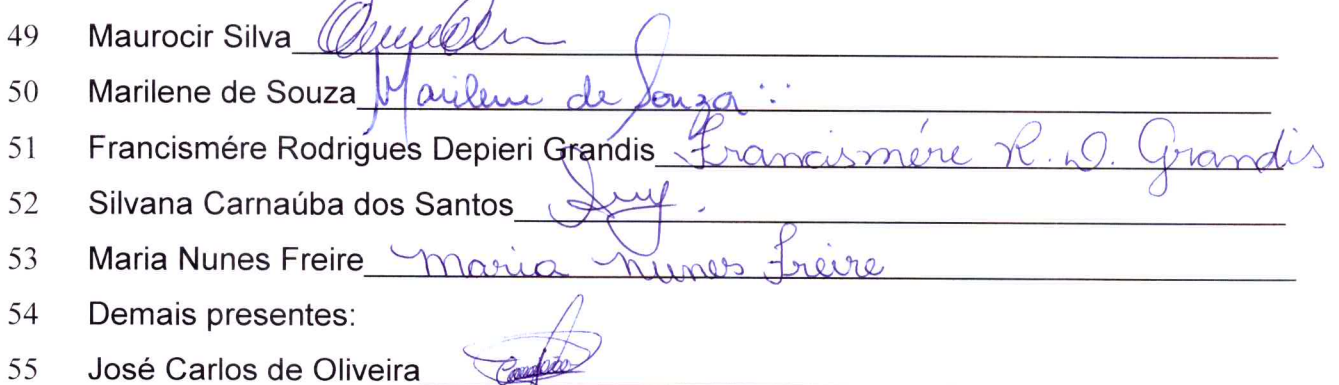 49 Maurocir Silva
50 Marilene de Souza Marilene de Souza
51 Francismére Rodrigues Depieri Grandis Francismére R. D. Grandis
52 Silvana Carnaúba dos Santos
53 Maria Nunes Freire Maria Nunes Freire
54 Demais presentes:
55 José Carlos de Oliveira